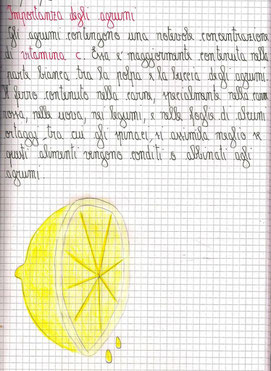 Importanza degli agrumi
Gli agrumi contengono una notevole concentrazione
di vitamina C. Essa è maggiormente contenuta nella
parte bianca tra la polpa e la buccia degli agrumi.
Il ferro contenuto nella carne, specialmente nella carne
rossa, nelle uova, nei legumi, e nelle foglie di alcuni
ortaggi tra cui gli spinaci, si assimila meglio se
questi alimenti vengono conditi o abbinati agli
agrumi.